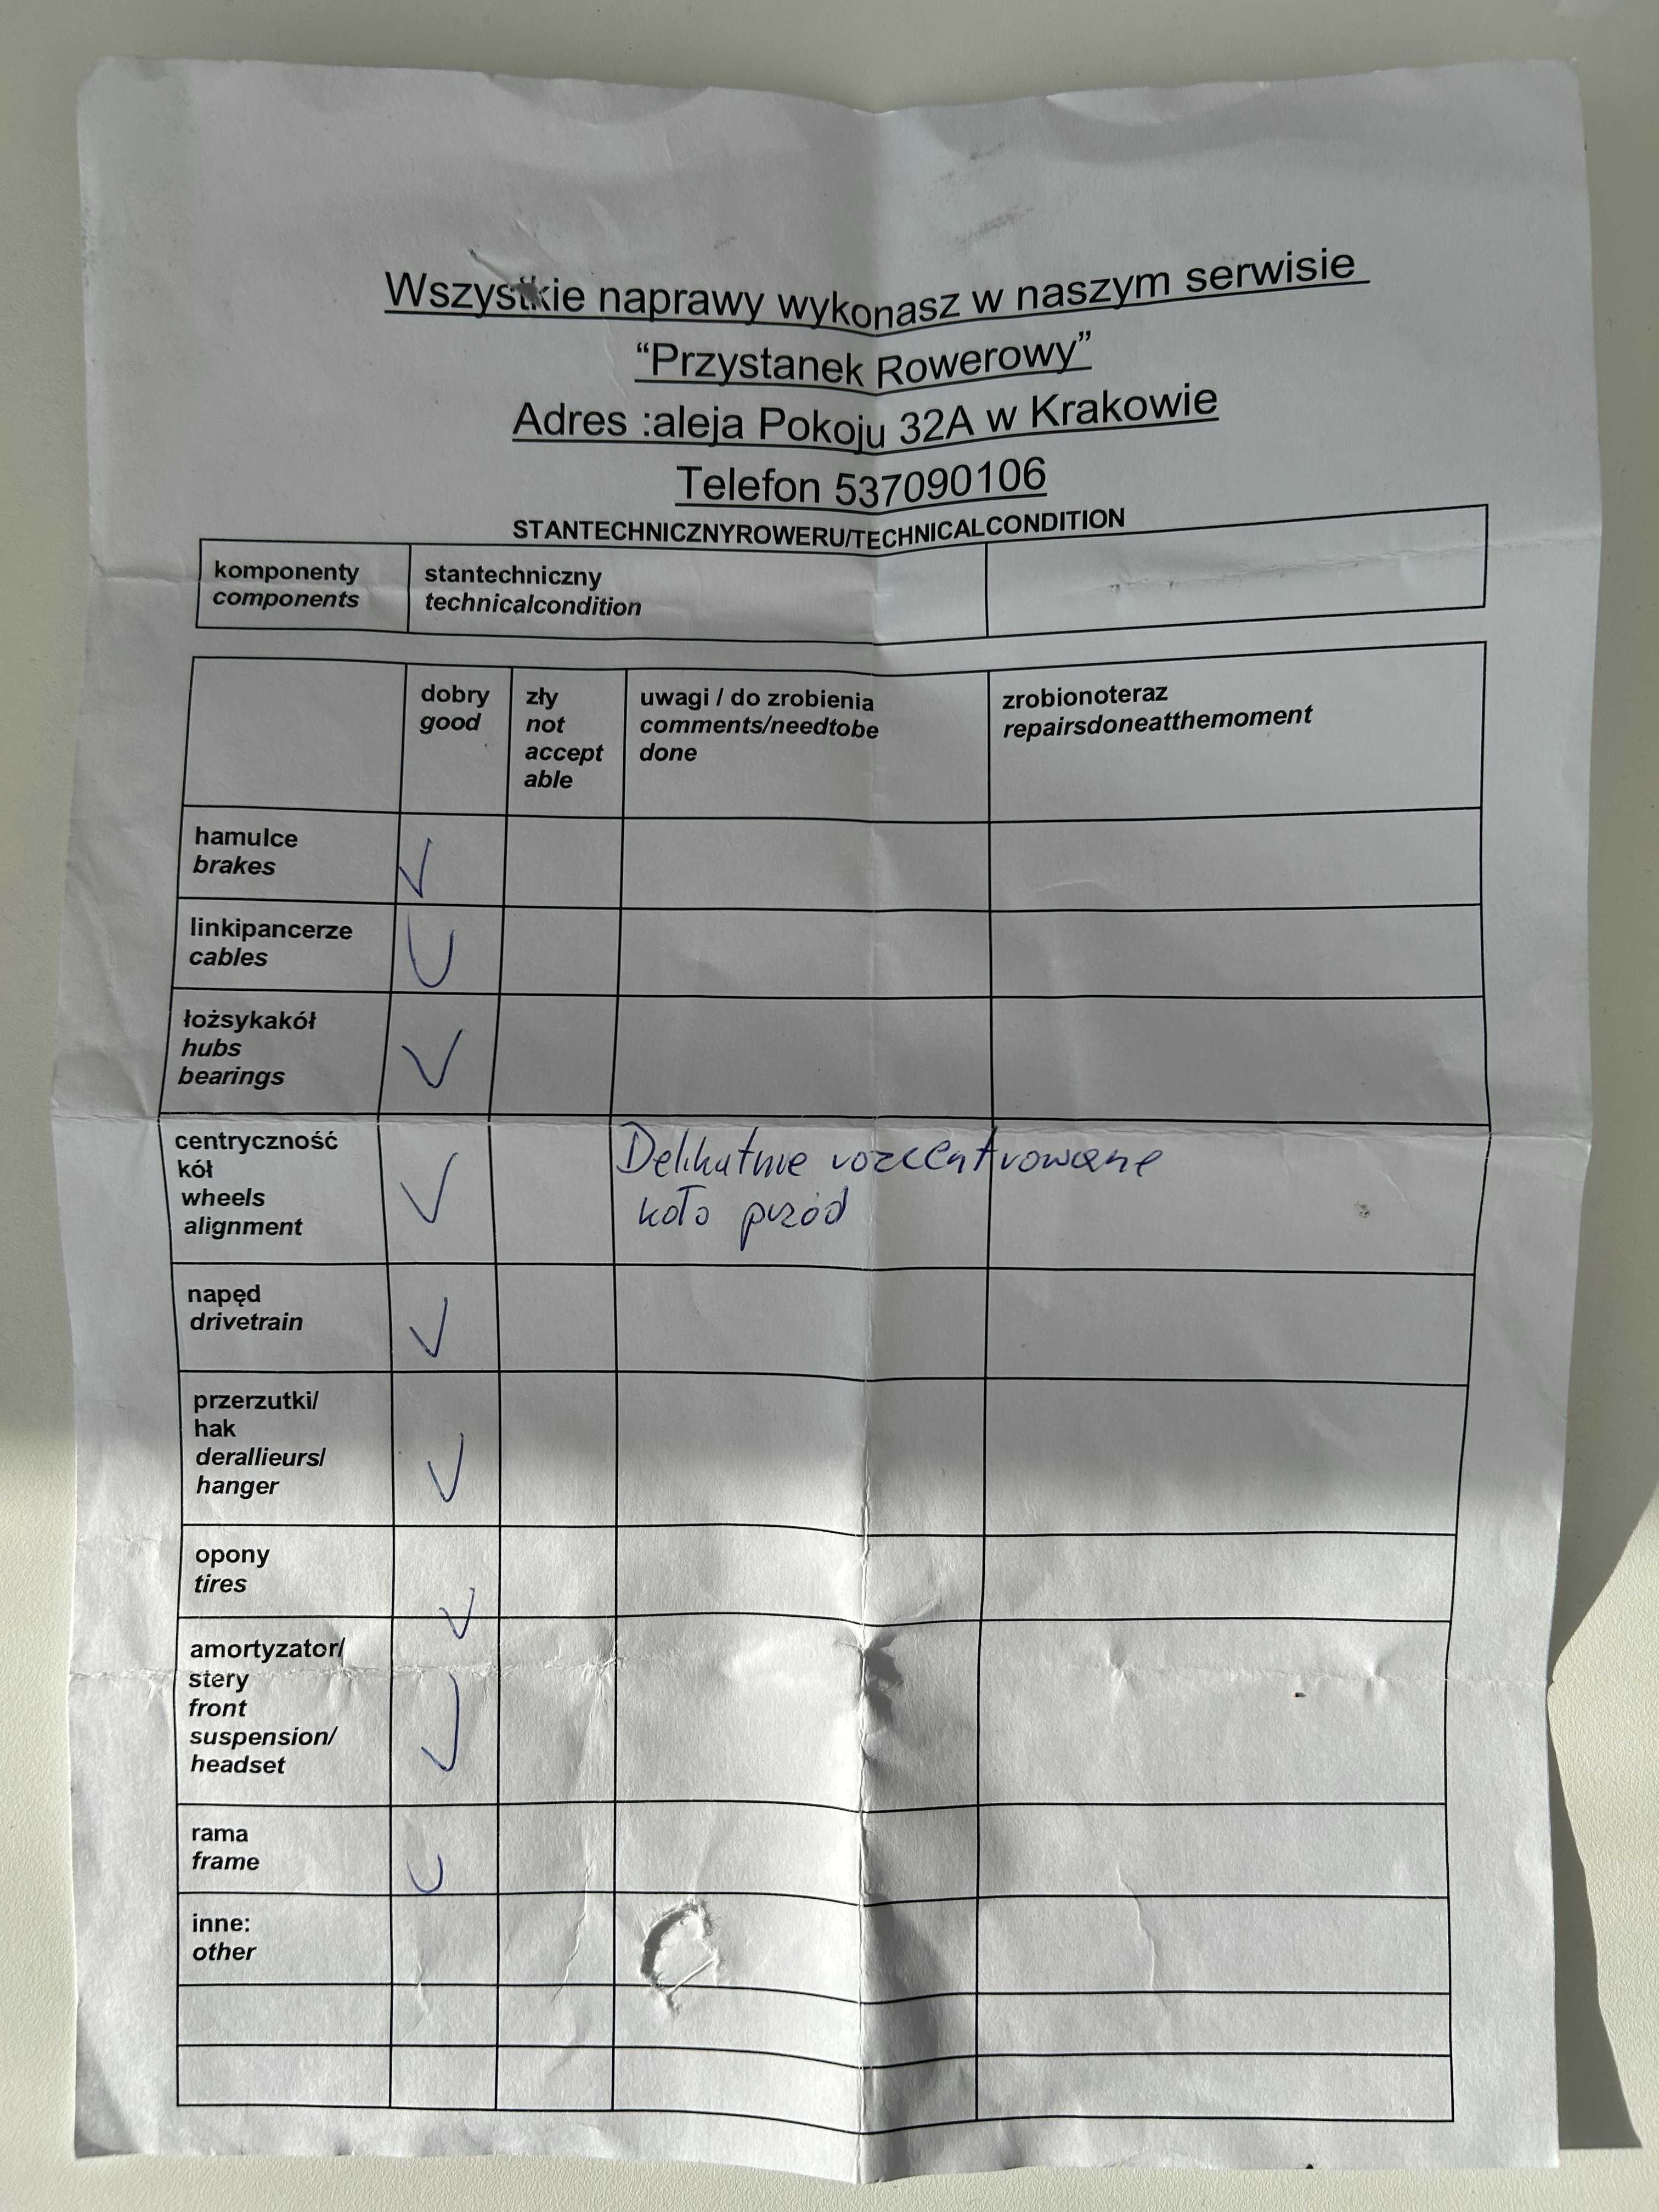 Wszystkie naprawy wykonasz w naszym serwisie
“Przystanek Rowerowy”
Adres :aleja Pokoju 32A w Krakowie
Telefon 537090106
STANTECHNICZNYROWERU/TECHNICALCONDITION
komponenty
components
stantechniczny
technicalcondition
dobry
good
zły
not
accept
able
uwagi / do zrobienia
comments/needtobe
done
zrobionoteraz
repairsdoneatthemoment
hamulce
brakes
linkipancerze
cables
łożsykakół
hubs
bearings
centryczność
kół
wheels
alignment
Delikatnie rozcentrowane
koło przód
napęd
drivetrain
przerzutki/
hak
derallieurs/
hanger
opony
tires
amortyzator/
stery
front
suspension/
headset
rama
frame
inne:
other